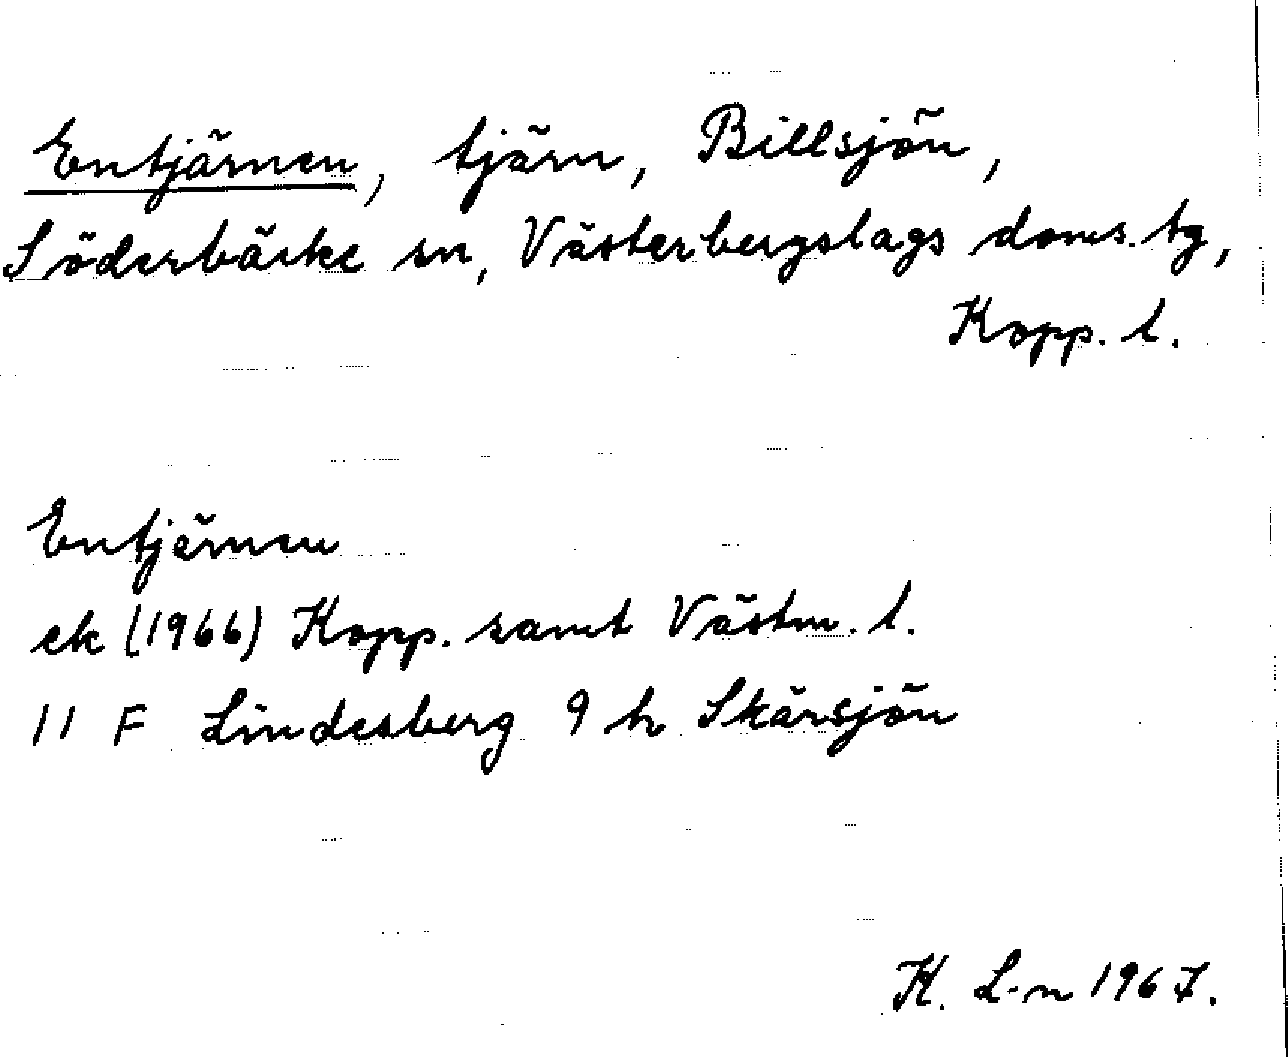 Entjärnen, tjärn, Billsjön,
Söderbärke sn, Västerbergslags doms. tg,
Kopp. l.
Entjärnen
ek (1966) Kopp. samt Västm. l.
11 F Lindesberg 9 h Skärsjön
K. L-n 1967.